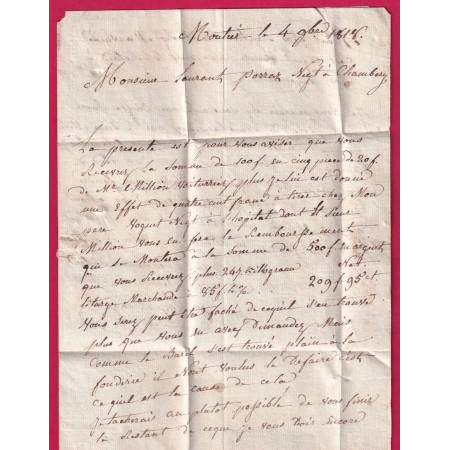 Moutier le 4 9bre 1818.
Monsieur Laurant porraz Negt à Chambery
La presente est pour vous aviser que vous
Recevrez la Somme de 100f en cinq piece de 20f
de Mr. Million voiturrier, plus je lui est donné
une Effet de quatre cent franc à tirer chez Mon
pere Negt à L'hopital dont st Sieur
Million vous en fera le Remboursement
que se Montera à la Somme de 500f en argent
que vous Recevrez plus 247 Kilogramme Net
litarge Marchande 85f le % 209f 95ct
Vous serez peut etre faché de cequil s'en trouve
plus que vous n'avez dimandez Mais
Comme le Baril s'est trouvé plain à la
fonderie il n'ont voulus le Refaire c'est
ce quiel est la cause de cela
Je tacherais au plutot possible de vous finir
le Restant de ceque je vous Dois encore